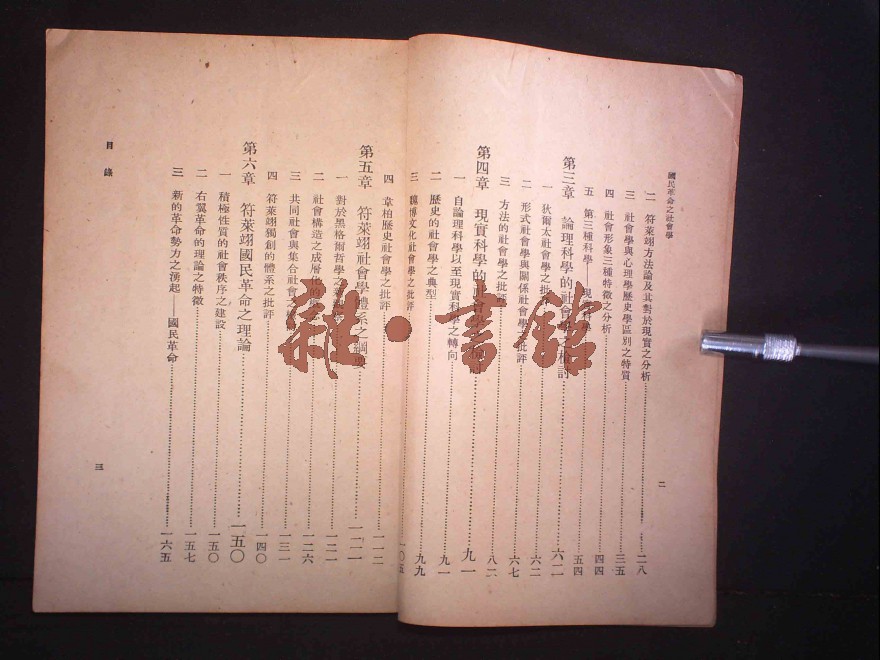 國民革命之社會學
二 符萊翊方法論及其對於現實之分析 二八
三 社會學與心理學歷史學區別之特質 三五
四 社會形象三種特徵之分析 四四
五 第三種科學——現 科學 五四
第三章 論理科學的社會學之檢討 六二
一 狄爾太社會學之批 六二
二 形式社會學與關係社會學 批評 六七
三 方法的社會學之批評 八二
第四章 現實科學的社會學 檢討 九一
一 自論理科學以至現實科學之轉向 九一
二 歷史的社會學之典型 九九
三 韓博文化社會學之批評 一〇五
四 韋柏歷史社會學之批評 一一二
第五章 符萊翊社會學體系之綱要 一二一
一 對於黑格爾哲學之 一二一
二 社會構造之成層化的 一二六
三 共同社會與集合社會之 一三一
四 符萊翊獨創的體系之批評 一四〇
第六章 符萊翊國民革命之理論 一五〇
一 積極性質的社會秩序之建設 一五〇
二 右翼革命的理論之特徵 一五七
三 新的革命勢力之湧起——國民革命 一六五
目錄
二
三
雜·書館